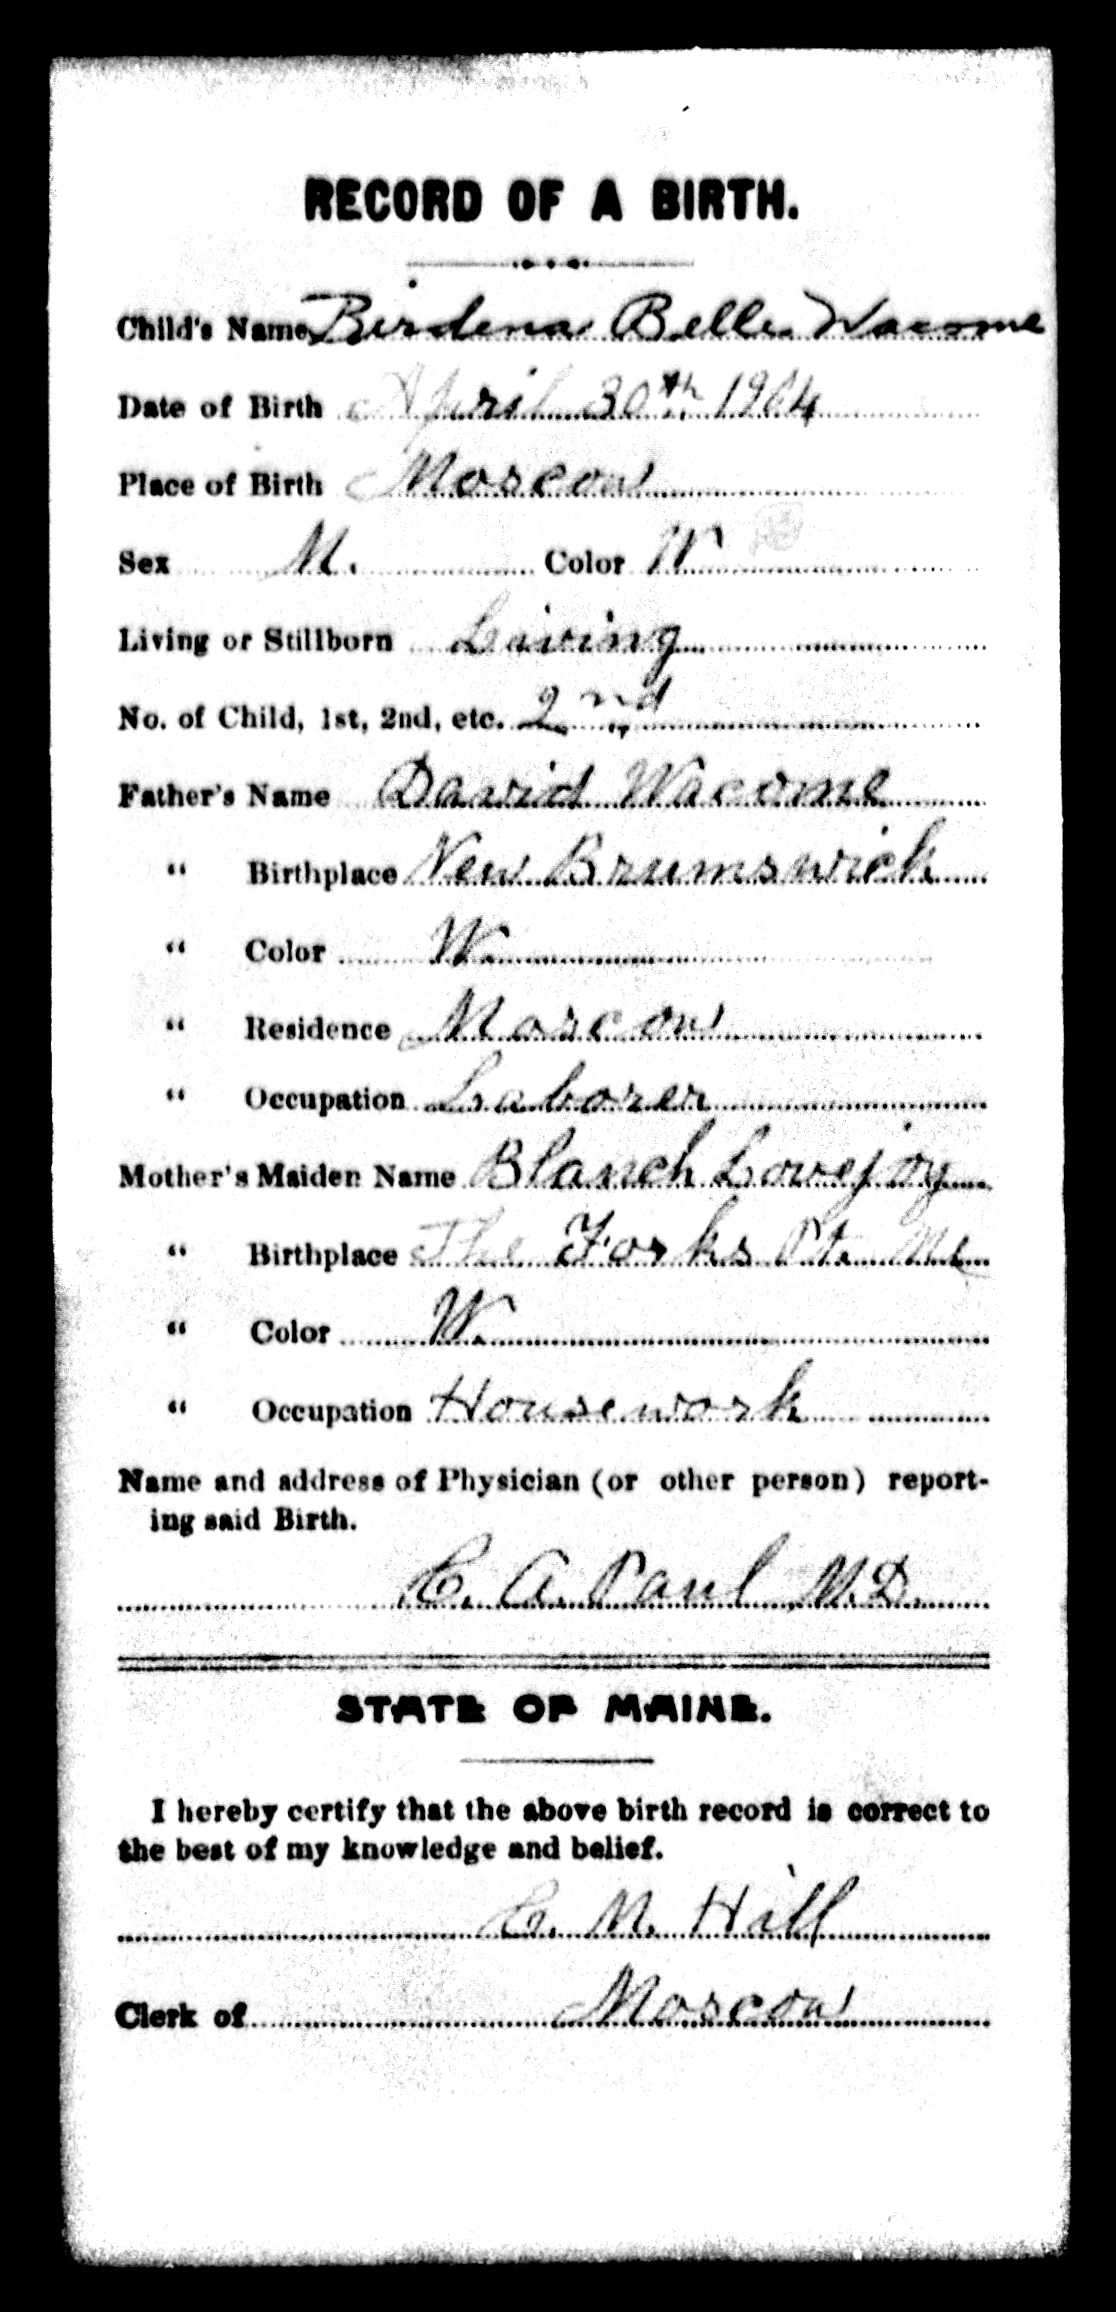 RECORD OF A BIRTH.
Child's Name Birdena Belle Wacome
Date of Birth April 30th 1904
Place of Birth Moscow
Sex M. Color W
Living or Stillborn Laiving
No. of Child, 1st, 2nd, etc. 2nd
Father's Name David Wacome
" Birthplace New Brumswick
" Color W.
" Residence Moscow
" Occupation Laborer
Mother's Maiden Name Blanch Lovejoy
" Birthplace The Forks Pt. Me
" Color W.
" Occupation Housework
Name and address of Physician (or other person) report-
ing said Birth.
C. A. Paul M.D.
STATE OF MAINE.
I hereby certify that the above birth record is correct to
the best of my knowledge and belief.
C. M. Hill
Clerk of Moscow